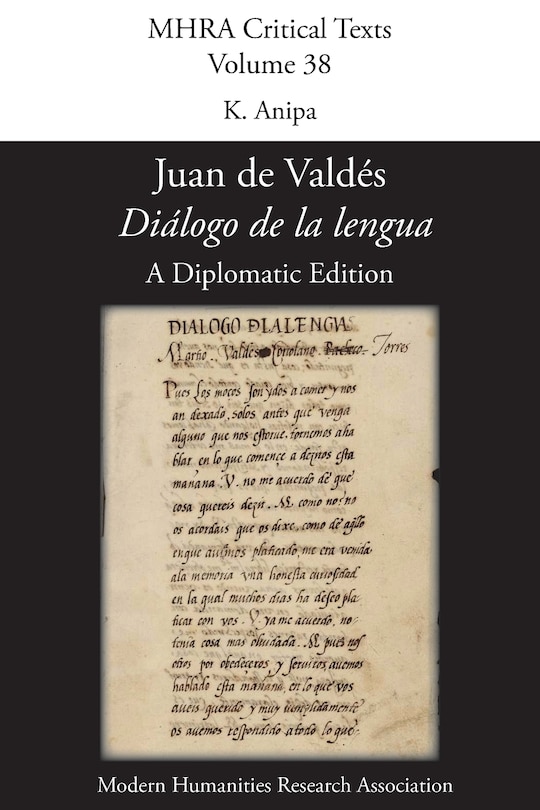 MHRA Critical Texts
Volume 38
K. Anipa
Juan de Valdés
Diálogo de la lengua
A Diplomatic Edition
DIALOGO DLALENGVA
Martio. Valdes Coriolano. Pacheco. Torres
Pues los moços son ydos a comer y nos
an dexado, solos antes que venga
alguno que nos estorue, tornemos aha
blar en lo que començe a deziros esta
mañana. V. no me acuerdo de que
cosa quereis dezir. M. como no? no
os acordais que os dixe, como de aqllo
enque auiamos platicado, me era venida
ala memoria vna honesta curiosidad
en la qual muchos dias ha deseo pla-
ticar con vos. V. ya me acuerdo, no
tenia cosa mas oluidada. M. pues nos
otros por obedeceros y seruiros auemos
hablado esta mañana en lo que vos
aueis querido y muy cumplidamente
os auemos respondido atodo lo que
Modern Humanities Research Association